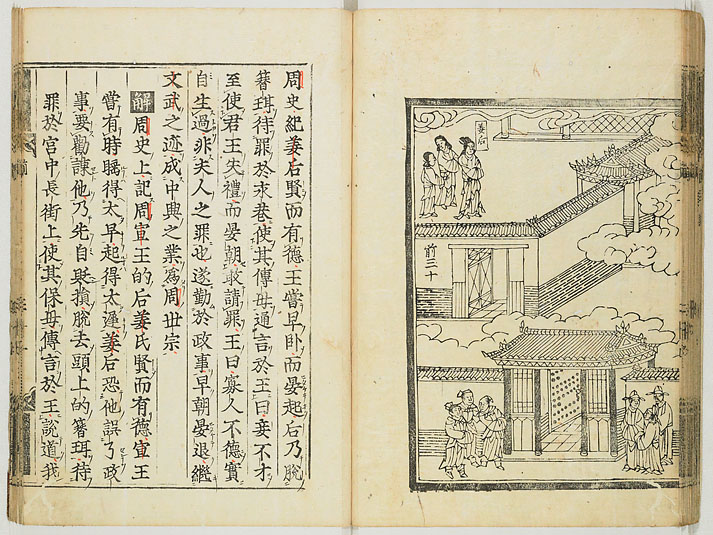 姜后
前三十
周史紀姜后賢而有德王嘗早卧而晏起后乃脫
簪珥待罪於永巷使其傅母通言於王曰妾不才
至使君王失禮而晏朝敢請罪王曰寡人不德實
自生過非夫人之罪也遂勤於政事早朝晏退繼
文武之迹成中興之業爲周世宗
解周史上記周宣王的后姜氏賢而有德宣王
嘗有時睡得太早起得太遲姜后恐他誤了政
事要勸諫他乃先自貶損脫去頭上的簪珥待
罪於宮中長街上使其保母傳言於王說道我